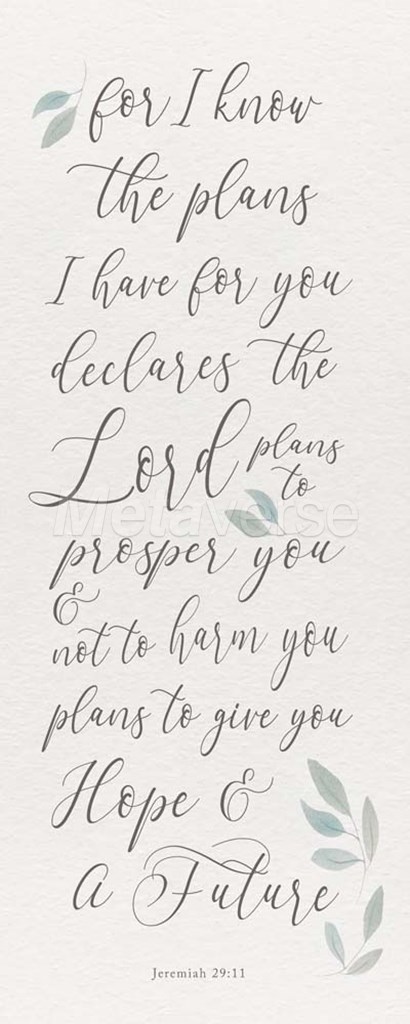 for I know
the plans
I have for you
declares the
Lord plans
to
Metaverse
prosper you
&
not to harm you
plans to give you
Hope &
A Future
Jeremiah 29:11